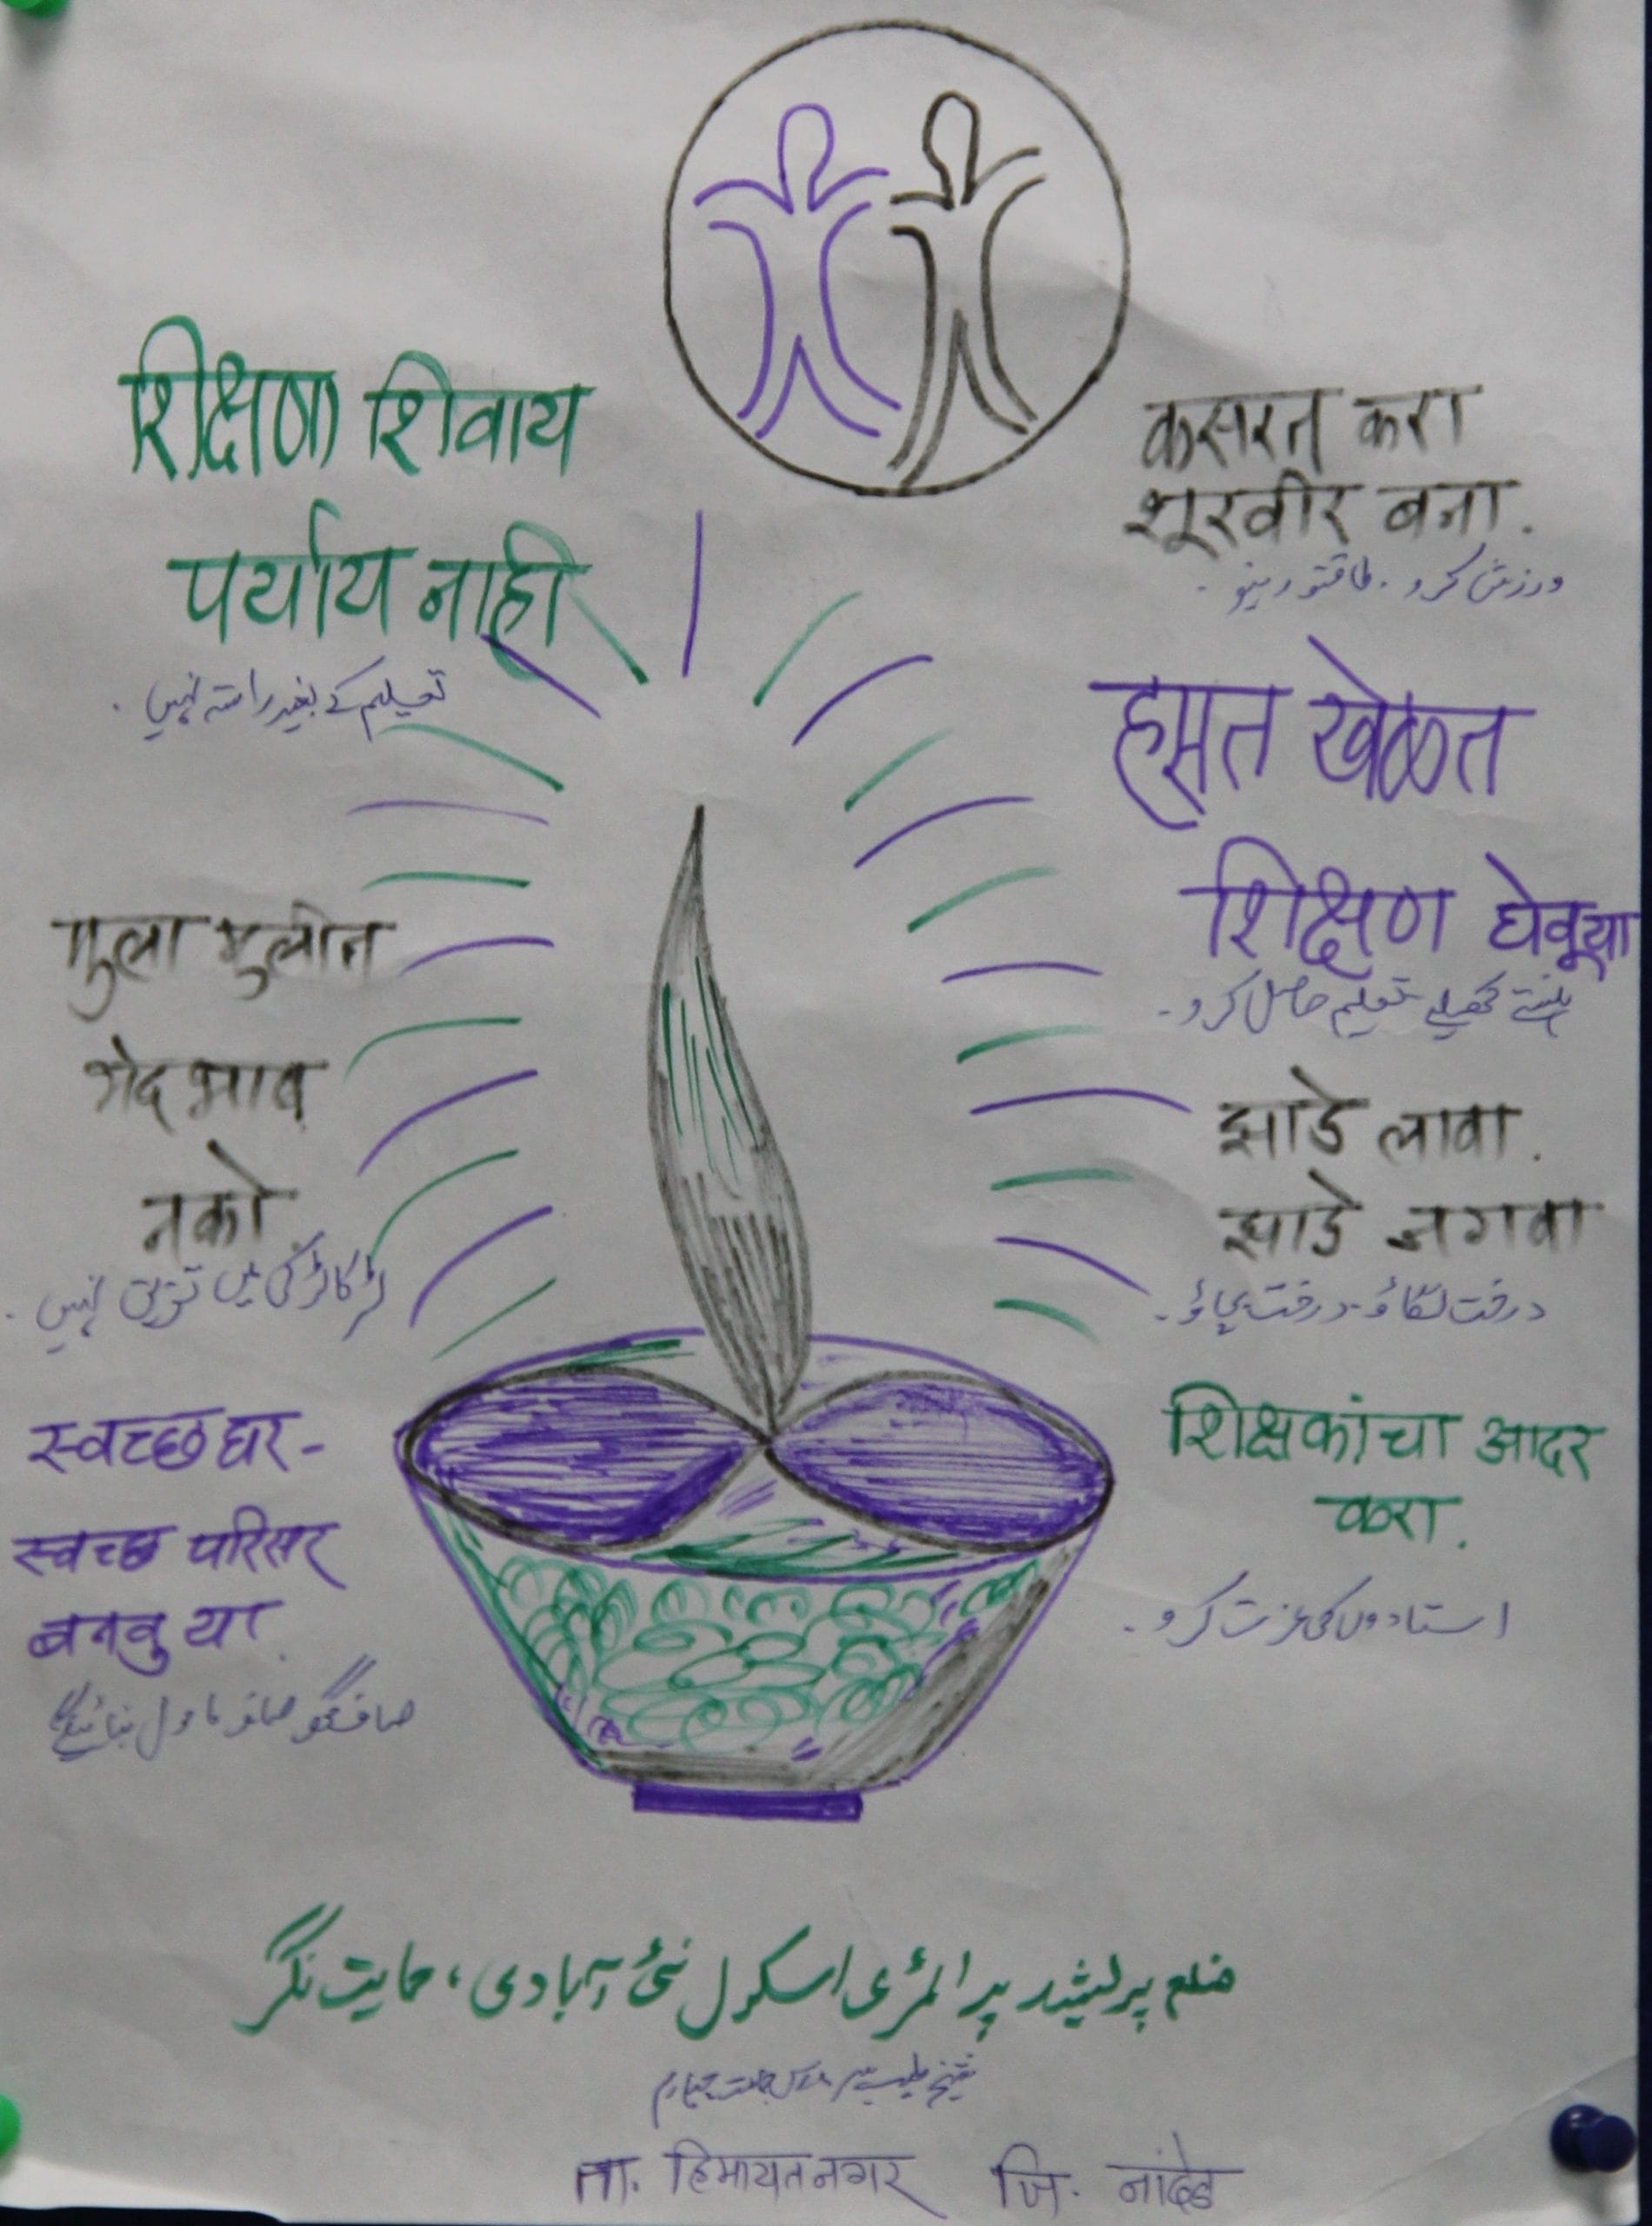 शिक्षणा शिवाय
पर्याय नाही
تعلیم کے بغیر راستہ نہیں۔
मुला मुलीत
भेद भाव
नको.
لڑکا لڑکی میں تفریق نہیں۔
स्वच्छ घर-
स्वच्छ परिसर
बनवु या.
صاف گھر صاف ماحول بنائینگے
कसरत करा
शूरवीर बना.
ورزش کرو۔ طاقتور بنو۔
हसत खेळत
शिक्षण घेवूया
ہنستے کھیلتے تعلیم حاصل کرو۔
झाडे लावा.
झाडे जगवा
درخت لگاؤ۔ درخت بچاؤ۔
शिक्षकांचा आदर
करा.
استادوں کی عزت کرو۔
ضلع پریشد پرائمری اسکول نئی آبادی، حمایت نگر
ता. हिमायतनगर जि. नांदेड